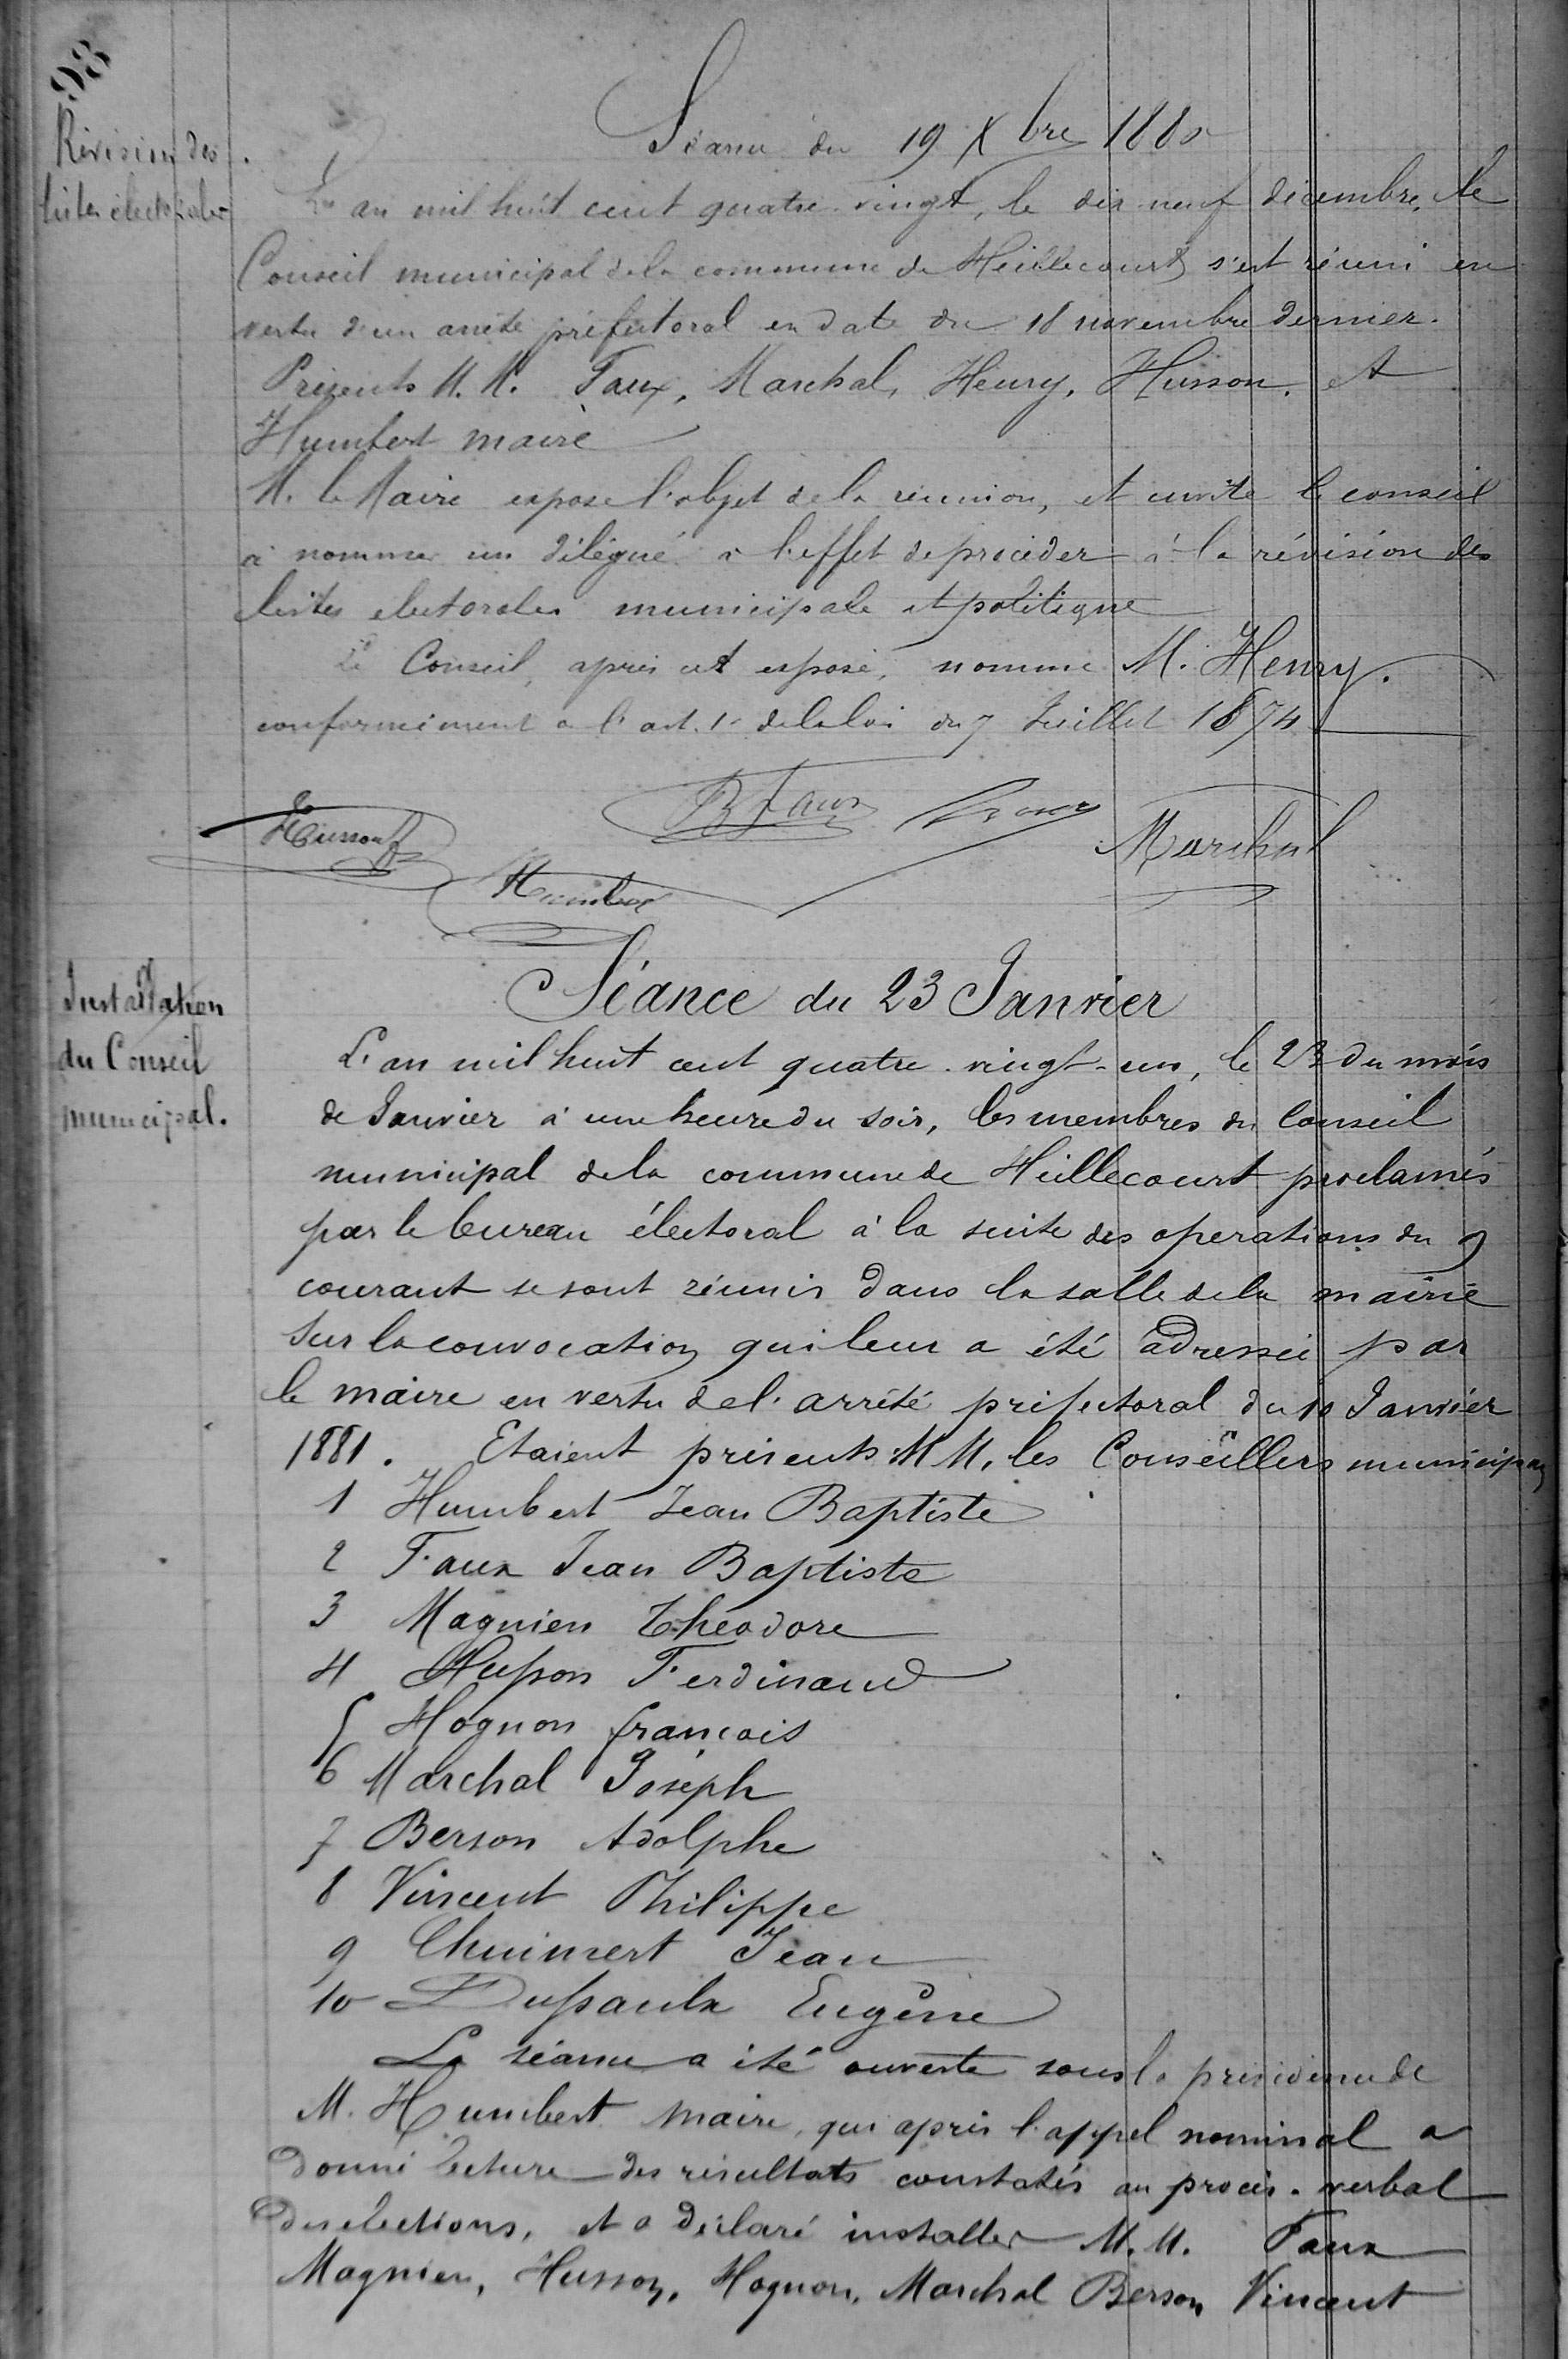 98
Révision des
listes électorales
Séance du 19 Xbre 1880
L'an mil huit cent quatre-vingt, le dix neuf décembre, le
Conseil municipal de la commune de Heillecourt s'est réuni en
vertu d'un arrêté préfectoral en date du 18 novembre dernier.
Présents M.M. Faux, Marchal, Henry, Husson, et
Humbert maire
M. le Maire expose l'objet de la réunion, et invite le conseil
à nommer un délégué à l'effet de procéder à la révision des
listes electorales municipale et politique
Le Conseil, après cet exposé, nomme M. Henry.
conformément a l'art. 1er de la loi du 7 Juillet 1874
Husson F
B Faux
Marchal
Humbert
Installation
du Conseil
municipal.
Séance du 23 Janvier
L'an mil huit cent quatre-vingt-un, le 23 du mois
de Janvier à une heure du soir, les membres du Conseil
municipal de la commune de Heillecourt proclamés
par le bureau électoral à la suite des operations du 9
courant se sont réunis dans la salle de la mairie
Sur la convocation qui leur a été adressée par
le maire en vertu de l'arrêté préfectoral du 10 Janvier
1881. Etaient présents MM. les Conseillers municipaux
1 Humbert Jean Baptiste
2 Faux Jean Baptiste
3 Magnien Théodore
4 Husson Ferdinand
5 Hognon françois
6 Marchal Joséph
7 Berson Adolphe
8 Vincent Philippe
9 Chuimert Jean
10 Dussaulx Eugène
La séance a été ouverte sous la présidence de
M. Humbert maire, qui après l'appel nominal a
donné lecture des résultats constatés au procès-verbal
des elections, et a déclaré installer M.M. Faux
Magnien, Husson, Hognon, Marchal Berson Vincent